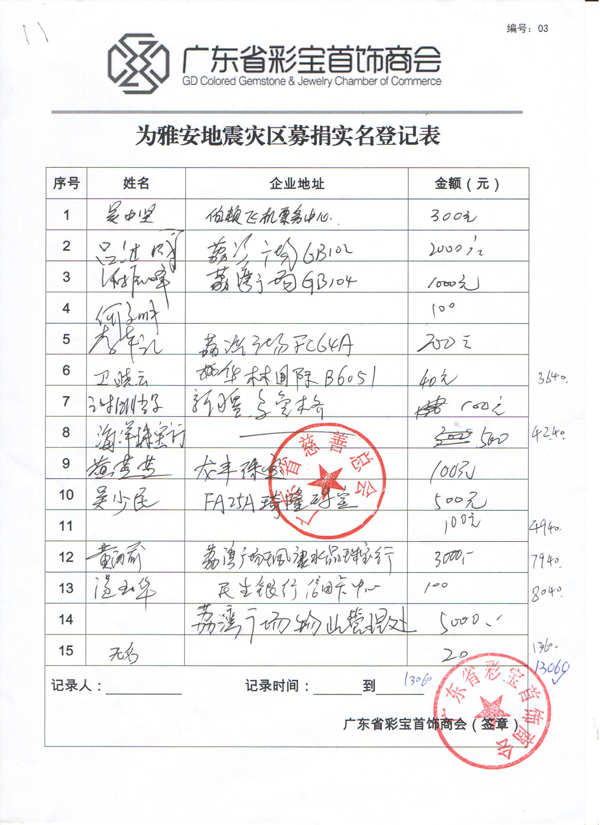 11
编号：03
广东省彩宝首饰商会
GD Colored Gemstone & Jewelry Chamber of Commerce
为雅安地震灾区募捐实名登记表
序号 姓名 企业地址 金额（元）
1 吴中坚 飞机票务中心 300元
2 荔湾广场GB102 2000元
3 荔湾广场GB104 1000元
4 100
5 荔湾广场FC64A 200元
6 卫晓云 华林国际B6051 40元 3640.
7 100元
8 海洋珠宝行 500 4240.
9 龙丰珠宝 100元
10 吴少民 FA25A 500元
11 100元 4940.
12 荔湾广场 水晶珠宝行 3000.- 7940.
13 民生银行信用卡中心 100 8040.
14 荔湾广场物业管理处 5000.-
15 无名 20 1360.
13060
记录人： 记录时间： 到 13060
广东省彩宝首饰商会（签章）
广东省慈善总会
广东省彩宝首饰商会